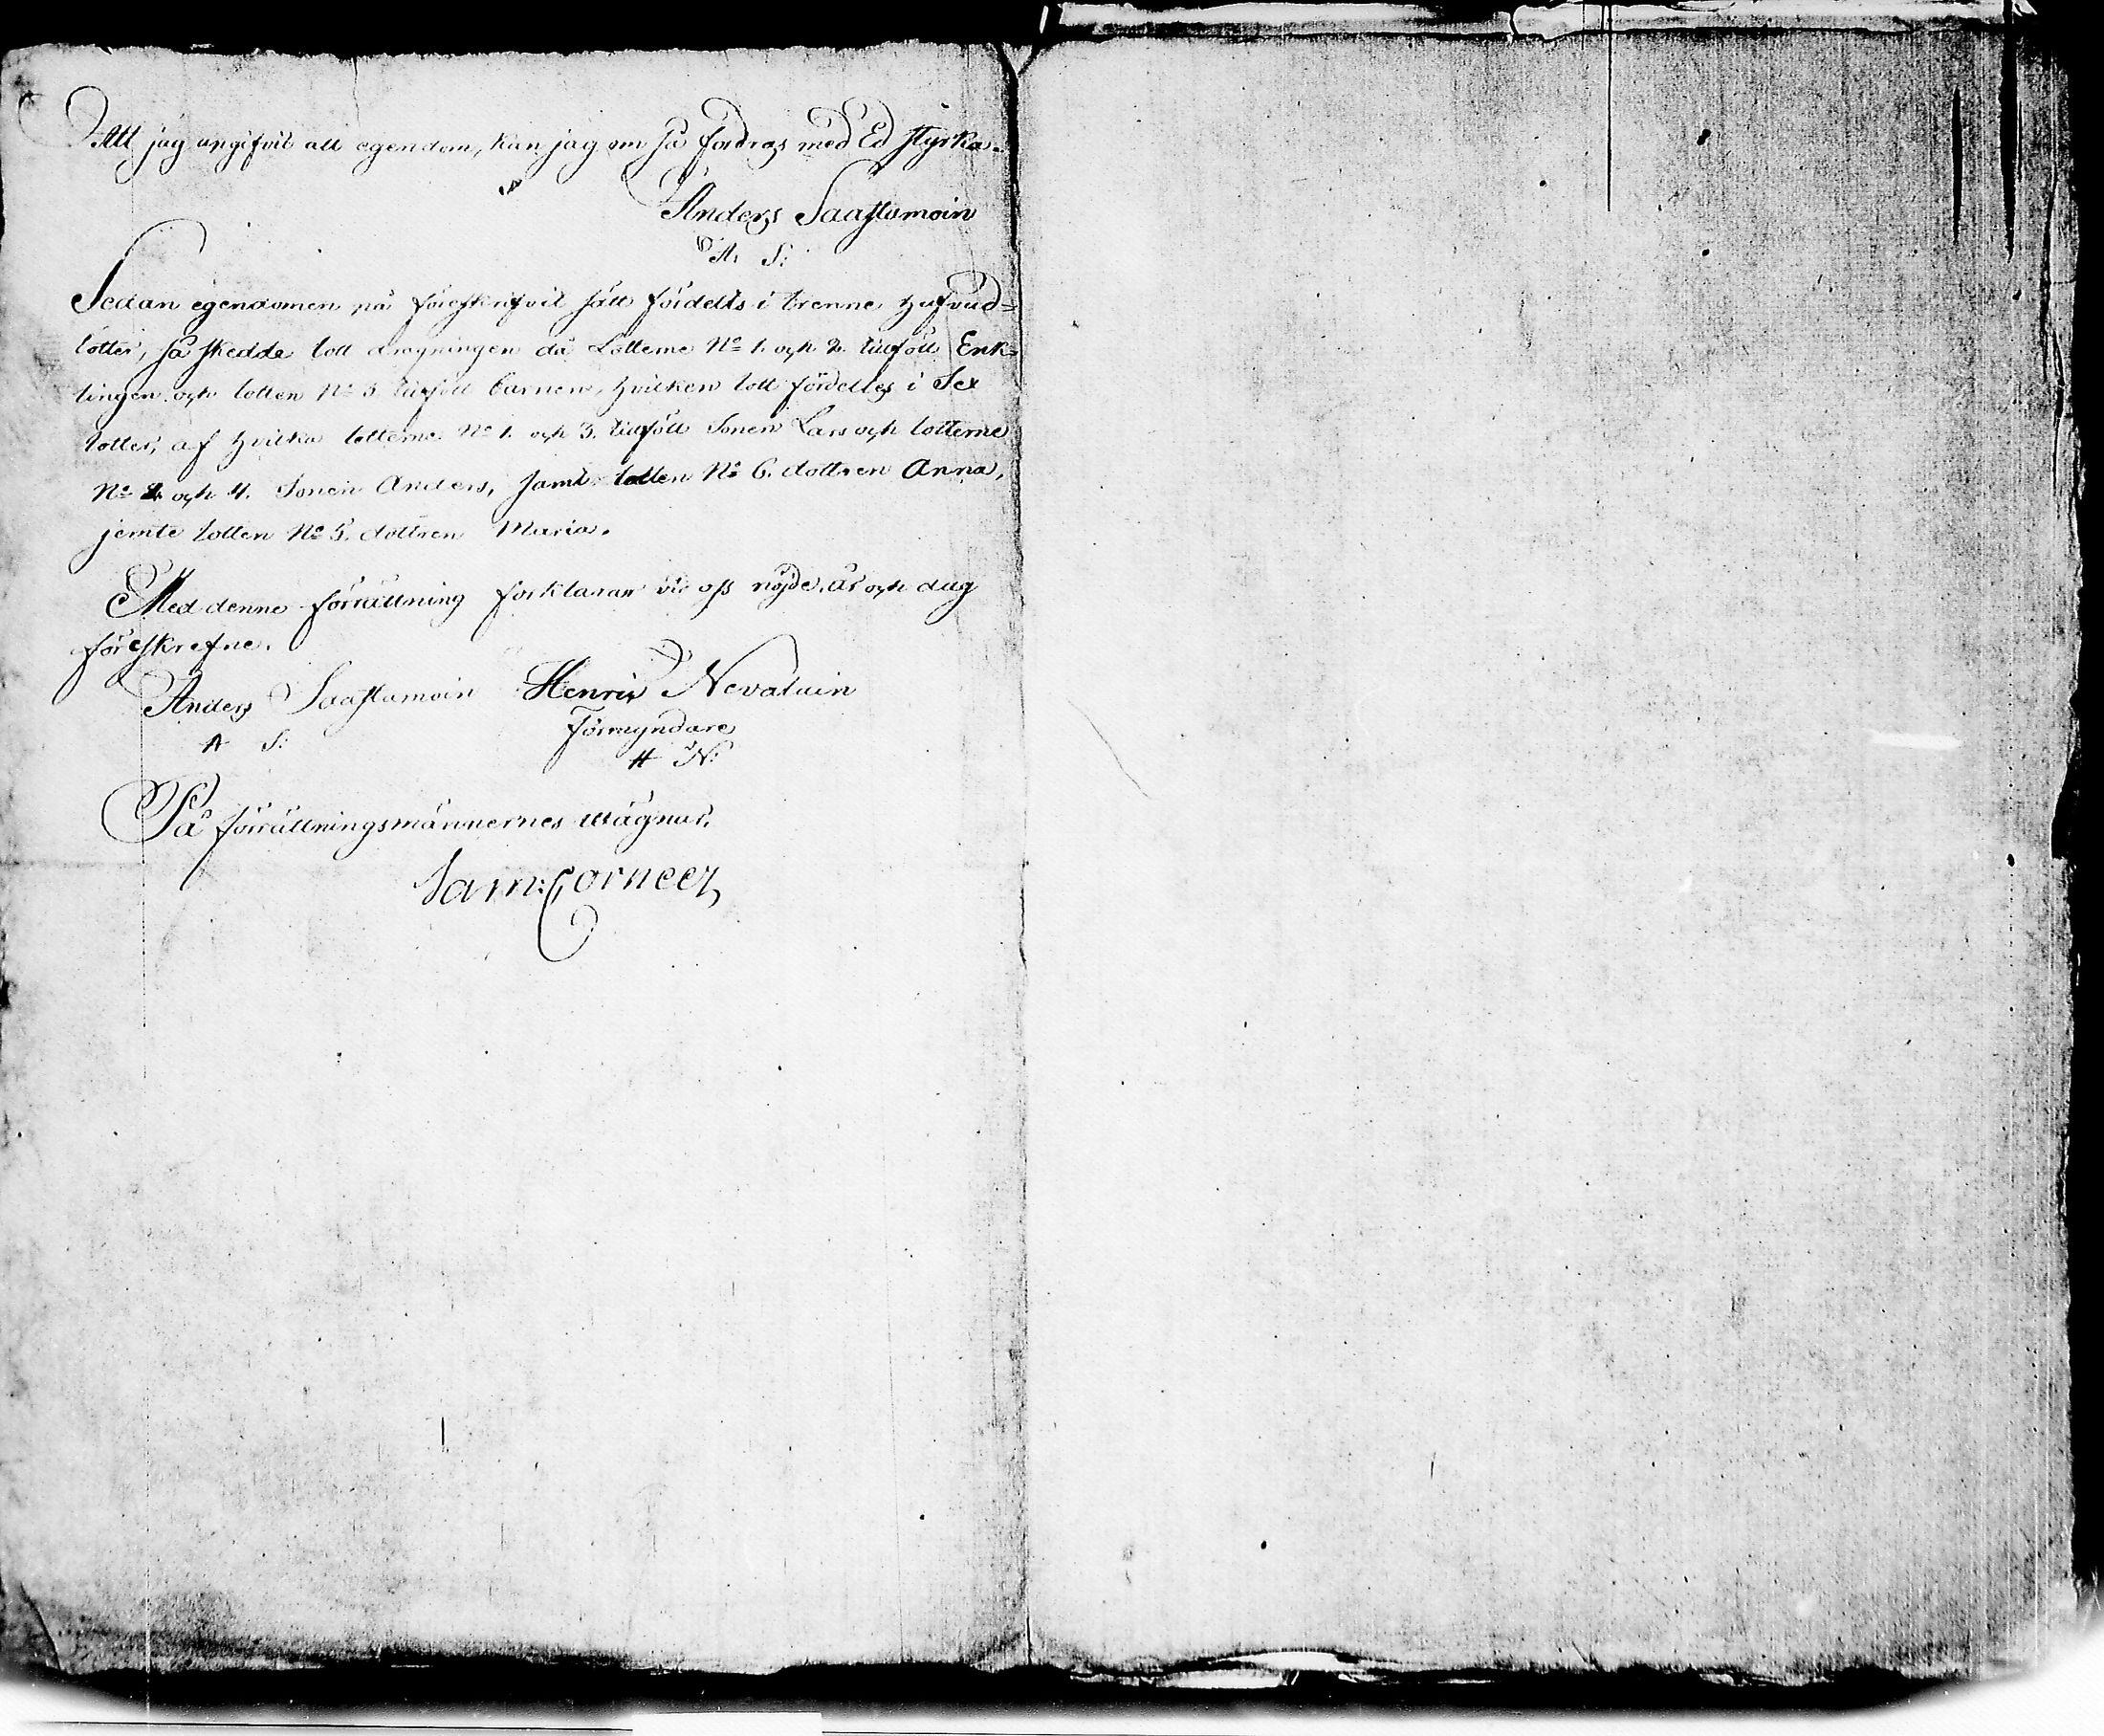 Att jag angifvit all egendom, kan jag om så fordras med Ed styrka.
Anders Saastamoin
A: S:
Sedan egendomen på föreskrifvit sätt fördelts i trenne hufvud=
lotter, så skedde lott dragningen då Lotterne No 1. och 2. tillföll Enk=
lingen och lotten No 3. tillföll barnen, hvilken lott fördeltes i Sex
lotter, af hvilka lotterne No 1. och 3. tillföll Sonen Lars och lotterne
No 2 och 4. Sonen Anders, samt lotten No 6. dottren Anna,
jemte lotten No 5. dottren Maria.
Med denne förrättning förklarar vi oss nöjde, år och dag
föreskrefne.
Anders Saastamoin Henric Nevalain
A S: förmyndare
H N:
På förrättningsmännernes wägnar,
Sam: Corneer